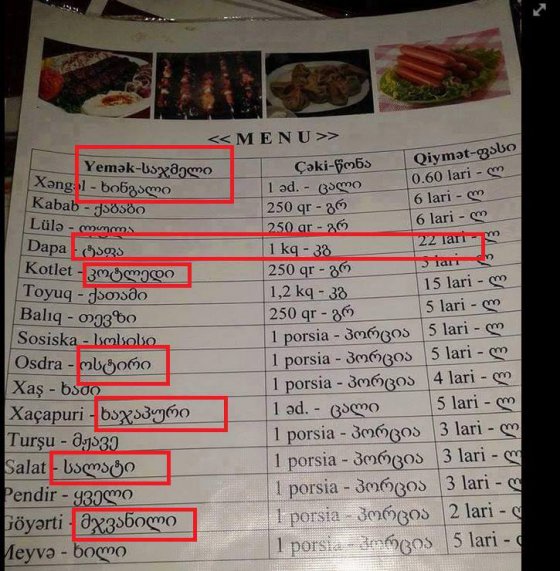 << M E N U >>
Yemək-საჯმელი Çəki-წონა Qiymət-ფასი
Xəngəl - ხინგალი 1 əd. - ცალი 0.60 lari - ლ
Kabab - ქაბაბი 250 qr - გრ 6 lari - ლ
Lülə - ლულა 250 qr - გრ 6 lari - ლ
Dapa - ტაფა 1 kq - კგ 22 lari - ლ
Kotlet - კოტლედი 250 qr - გრ 5 lari - ლ
Toyuq - ქათამი 1,2 kq - კგ 15 lari - ლ
Balıq - თევზი 250 qr - გრ 5 lari - ლ
Sosiska - სოსისი 1 porsia - პორცია 5 lari - ლ
Osdra - ოსტირი 1 porsia - პორცია 5 lari - ლ
Xaş - ხაში 1 porsia - პორცია 4 lari - ლ
Xaçapuri - ხაჯაპური 1 əd. - ცალი 5 lari - ლ
Turşu - მჟავე 1 porsia - პორცია 3 lari - ლ
Salat - სალატი 1 porsia - პორცია 3 lari - ლ
Pendir - ყველი 1 porsia - პორცია 3 lari - ლ
Göyərti - მჯვანილი 1 porsia - პორცია 2 lari - ლ
Meyvə - ხილი 1 porsia - პორცია 5 lari - ლ